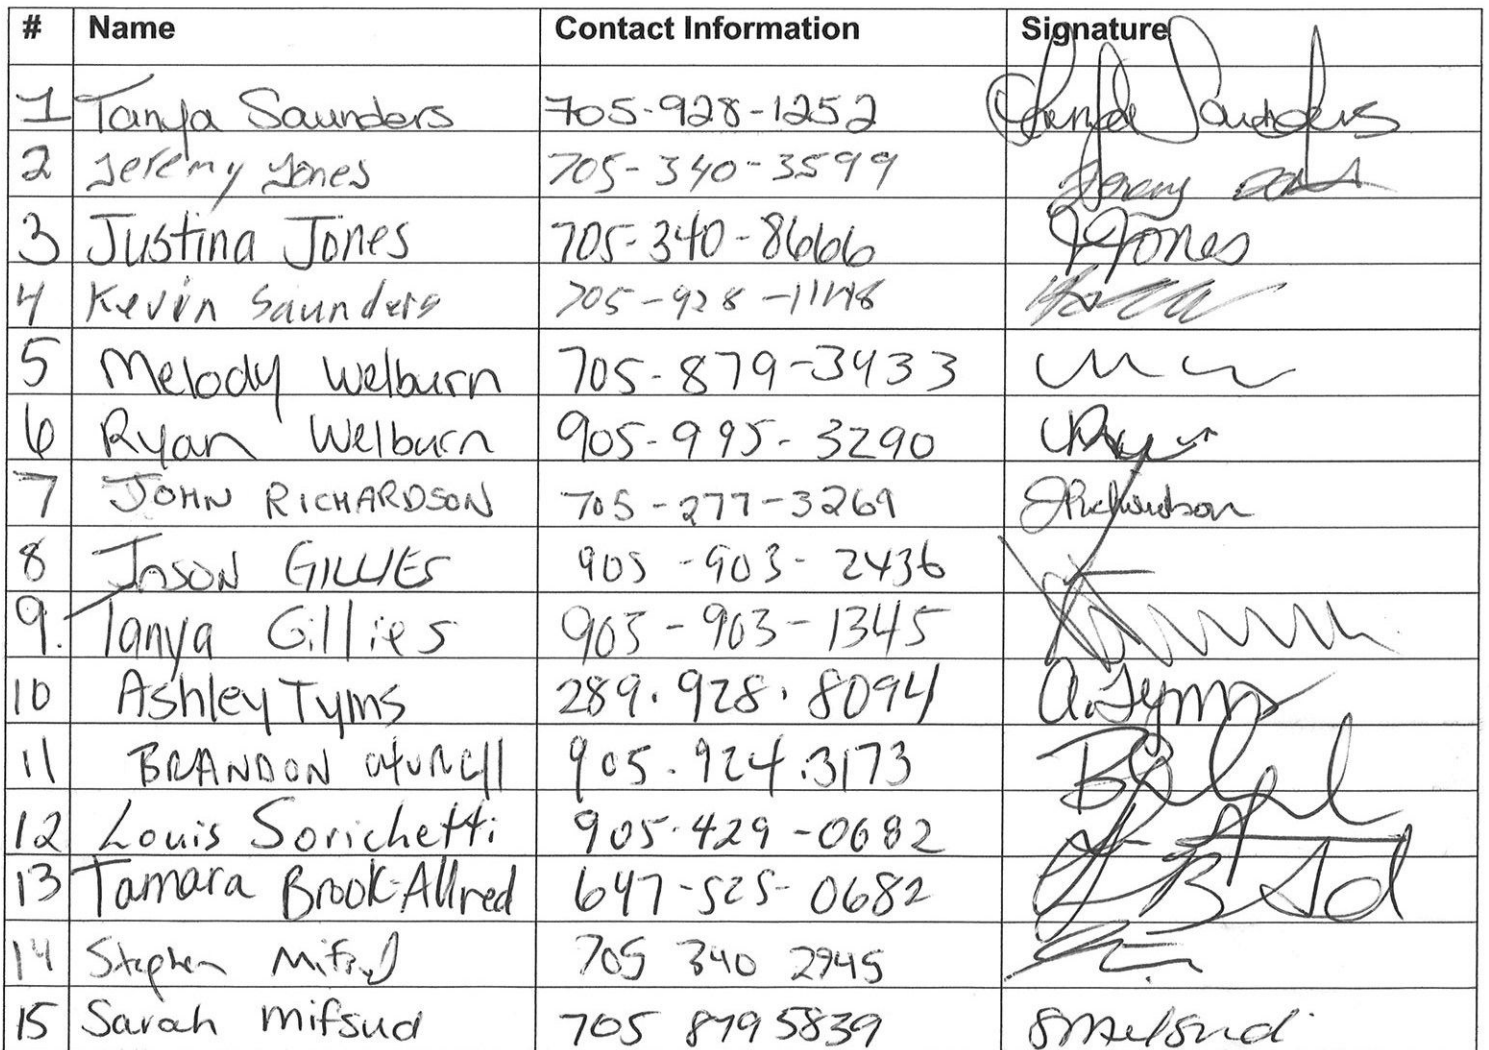 # Name Contact Information Signature
1 Tanya Saunders 705-928-1252 Tanya Saunders
2 Jeremy Jones 705-340-3599
3 Justina Jones 705-340-8666 JJones
4 Kevin Saunders 705-928-1148
5 Melody Welburn 705-879-3433
6 Ryan Welburn 905-995-3290
7 JOHN RICHARDSON 705-277-3269 JRichardson
8 JASON GILLIES 905-903-2436
9. Tanya Gillies 905-903-1345
10 Ashley Tyms 289.928.8094 A.Tyms
11 BRANDON 905.924.3173
12 Louis Sorichetti 905-429-0682
13 Tamara Brook-Allred 647-525-0682
14 Stephen Mifsud 705 340 2945
15 Sarah Mifsud 705 879 5839 SMifsud